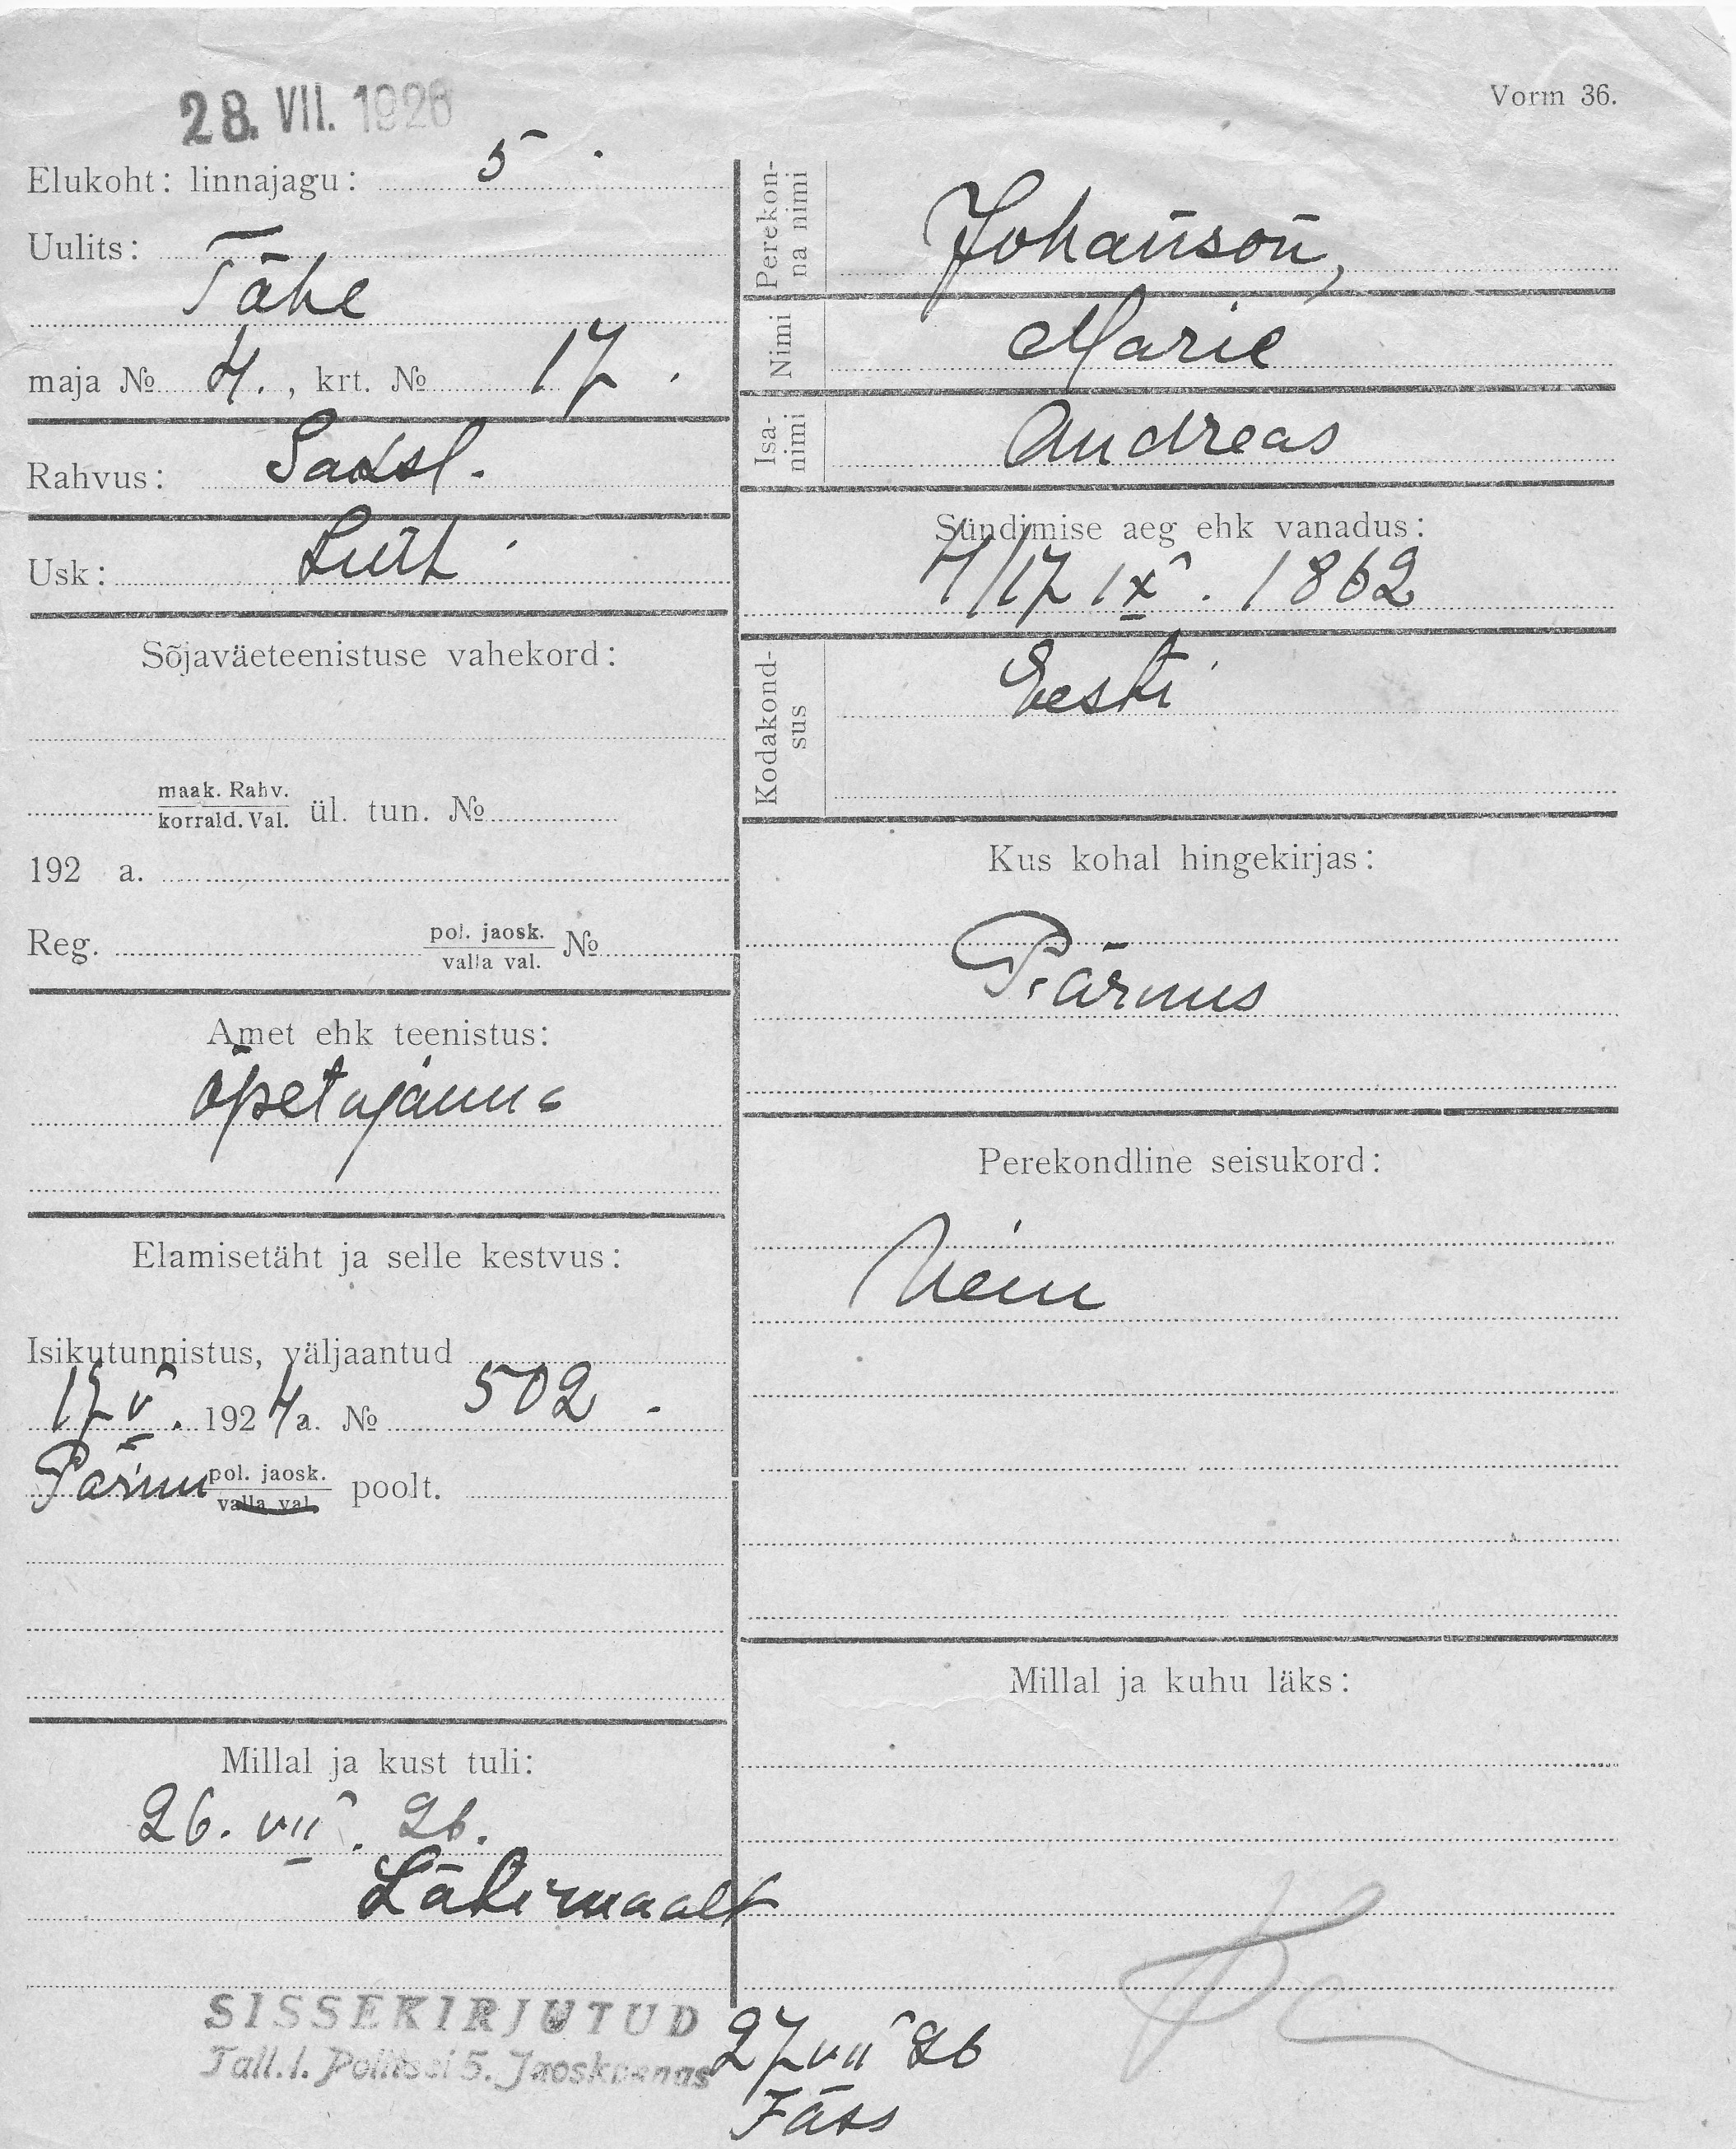 28. VII. 1926
Vorm 36.
Elukoht: linnajagu: 5.
Uulits:
Tähe
maja № 4., krt. № 17.
Rahvus: Saksl.
Usk: Luth.
Sõjaväeteenistuse vahekord:
maak. Rahv.
korrald. Val. ül. tun. №
192 a.
Reg. pol. jaosk. №
valla val.
Amet ehk teenistus:
õpetajanna
Elamisetäht ja selle kestvus:
Isikutunnistus, väljaantud
17 V. 1924 a. № 502.
Pärnu pol. jaosk. poolt.
valla val.
Millal ja kust tuli:
26. VII. 26.
Lätimaalt
SISSEKIRJUTUD
Tall. l. Politsei 5. Jaoskonnas
27 VII 26
Perekon-
na nimi
Johanson,
Nimi
Marie
Isa-
nimi
Andreas
Sündimise aeg ehk vanadus:
4/17 IX. 1862
Kodakond-
sus
Eesti
Kus kohal hingekirjas:
Pärnus
Perekondline seisukord:
Millal ja kuhu läks: